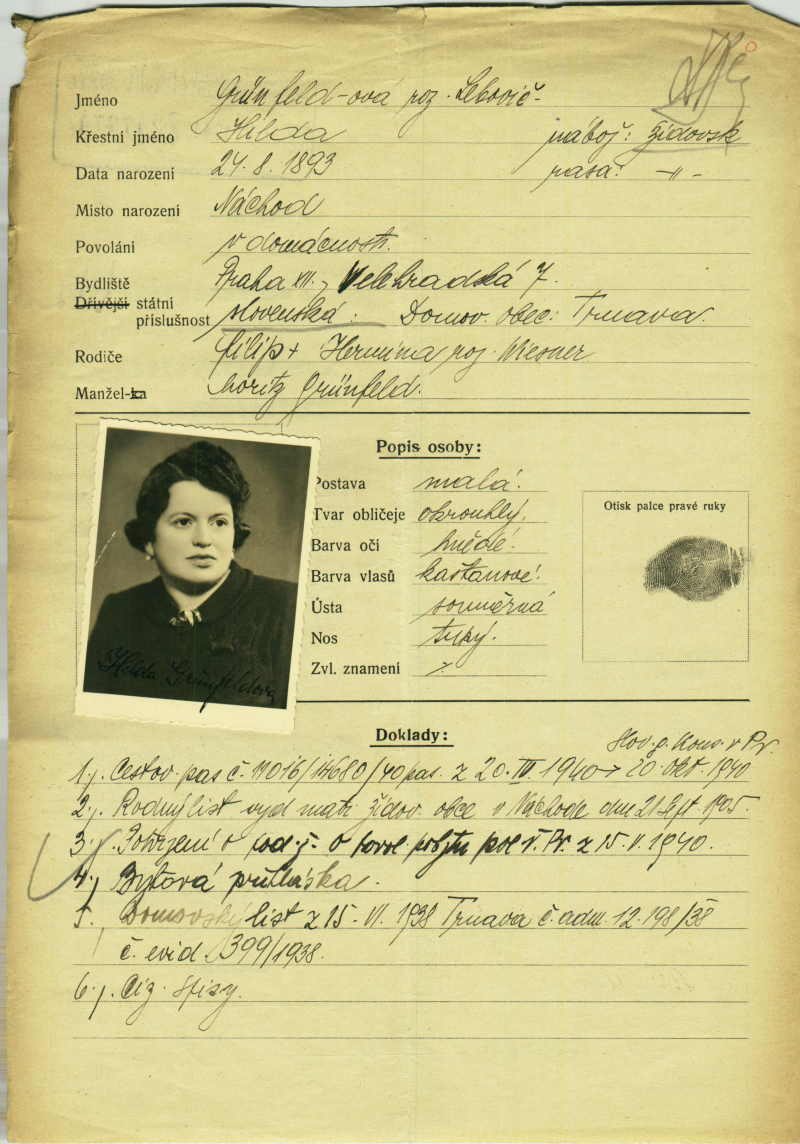 Jméno Grünfeld-ová roz. Lebovič-
Křestní jméno Hilda nábož: židovsk
Data narození 24. 8. 1893 rasa: -"-
Místo narození Náchod
Povoláni v domácnosti.
Bydliště Praha XII., Velehradská 7.
Dřívější státní
příslušnost slovenská. Domov. obec: Trnava.
Rodiče Filip + Hermina roz. Wiesner
Manžel-ka Moritz Grünfeld.
Popis osoby:
Postava malá.
Tvar obličeje okrouhlý.
Barva očí hnědé.
Barva vlasů kaštanové.
Ústa souměrná
Nos
Zvl. znamení
Otisk palce pravé ruky
Hilda Grünfeldova
Doklady:
Slov. g. Kons. v Pr.
1.). Cestov. pas č. 11016/14680/40 pas. z 20. IV. 1940 → 20. okt. 1940
2.). Rodný list vyd. matr. židov. obce v Náchodě dne 21. 1905.
3.). Potvrzení o pol. ř. Pr. z 15. V. 1940.
4.) Bytová přihláška.
5., Domovský list z 15. VI. 1938 Trnava č. adm. 12.198/38
č. evid. 1399/1938.
6.). Ciz. spisy.